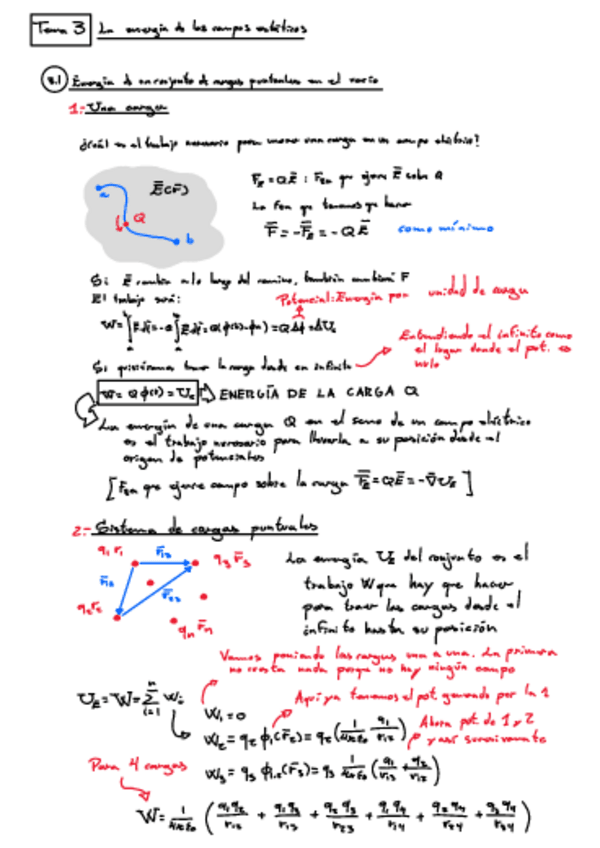 Tema 3 La energía de los campos estáticos
3.1 Energía de un conjunto de cargas puntuales en el vacío
1.- Una carga
¿Cuál es el trabajo necesario para mover una carga en un campo eléctrico?
Ē(r̄)
a
Q
b
F̄ₑ = QĒ : Fza que ejerce Ē sobre Q
La fza que tenemos que hacer
F̄ = -F̄ₑ = -QĒ como mínimo
Si Ē cambia a lo largo del camino, también cambiará F
El trabajo será:
Potencial: Energía por unidad de carga
W = ∫ F̄ dl̄ = -Q ∫ Ē dl̄ = Q(φ(b) - φ(a)) = QΔφ = ΔUₑ
Si quisiéramos traer la carga desde en infinito
Entendiendo el infinito como
el lugar donde el pot. es
nulo
W = Q φ(r̄) = Uₑ ⇒ ENERGÍA DE LA CARGA Q
La energía de una carga Q en el seno de un campo eléctrico
es el trabajo necesario para llevarla a su posición desde el
origen de potenciales
[Fza que ejerce campo sobre la carga F̄ₑ = QĒ = -∇̄Uₑ]
2.- Sistema de cargas puntuales
q₁ r̄₁ r̄₁₃ q₃ r̄₃
r̄₁₂ r̄₂₃
q₂ r̄₂
qₙ r̄ₙ
La energía Uₑ del conjunto es el
trabajo W que hay que hacer
para traer las cargas desde el
infinito hasta su posición
Vamos poniendo las cargas una a una. La primera
no cuesta nada porque no hay ningún campo
Uₑ = W = Σ_{i=1}^{n} Wᵢ
W₁ = 0
Aquí ya tenemos el pot generado por la 1
W₂ = q₂ φ₁(r̄₂) = q₂ (1/4πε₀ q₁/r₁₂)
Ahora pot de 1 y 2
y así sucesivamente
W₃ = q₃ φ₁,₂(r̄₃) = q₃ 1/4πε₀ (q₁/r₁₃ + q₂/r₁₂)
Para 4 cargas
W = 1/4πε₀ (q₁q₂/r₁₂ + q₁q₃/r₁₃ + q₂q₃/r₂₃ + q₁q₄/r₁₄ + q₂q₄/r₂₄ + q₃q₄/r₃₄)